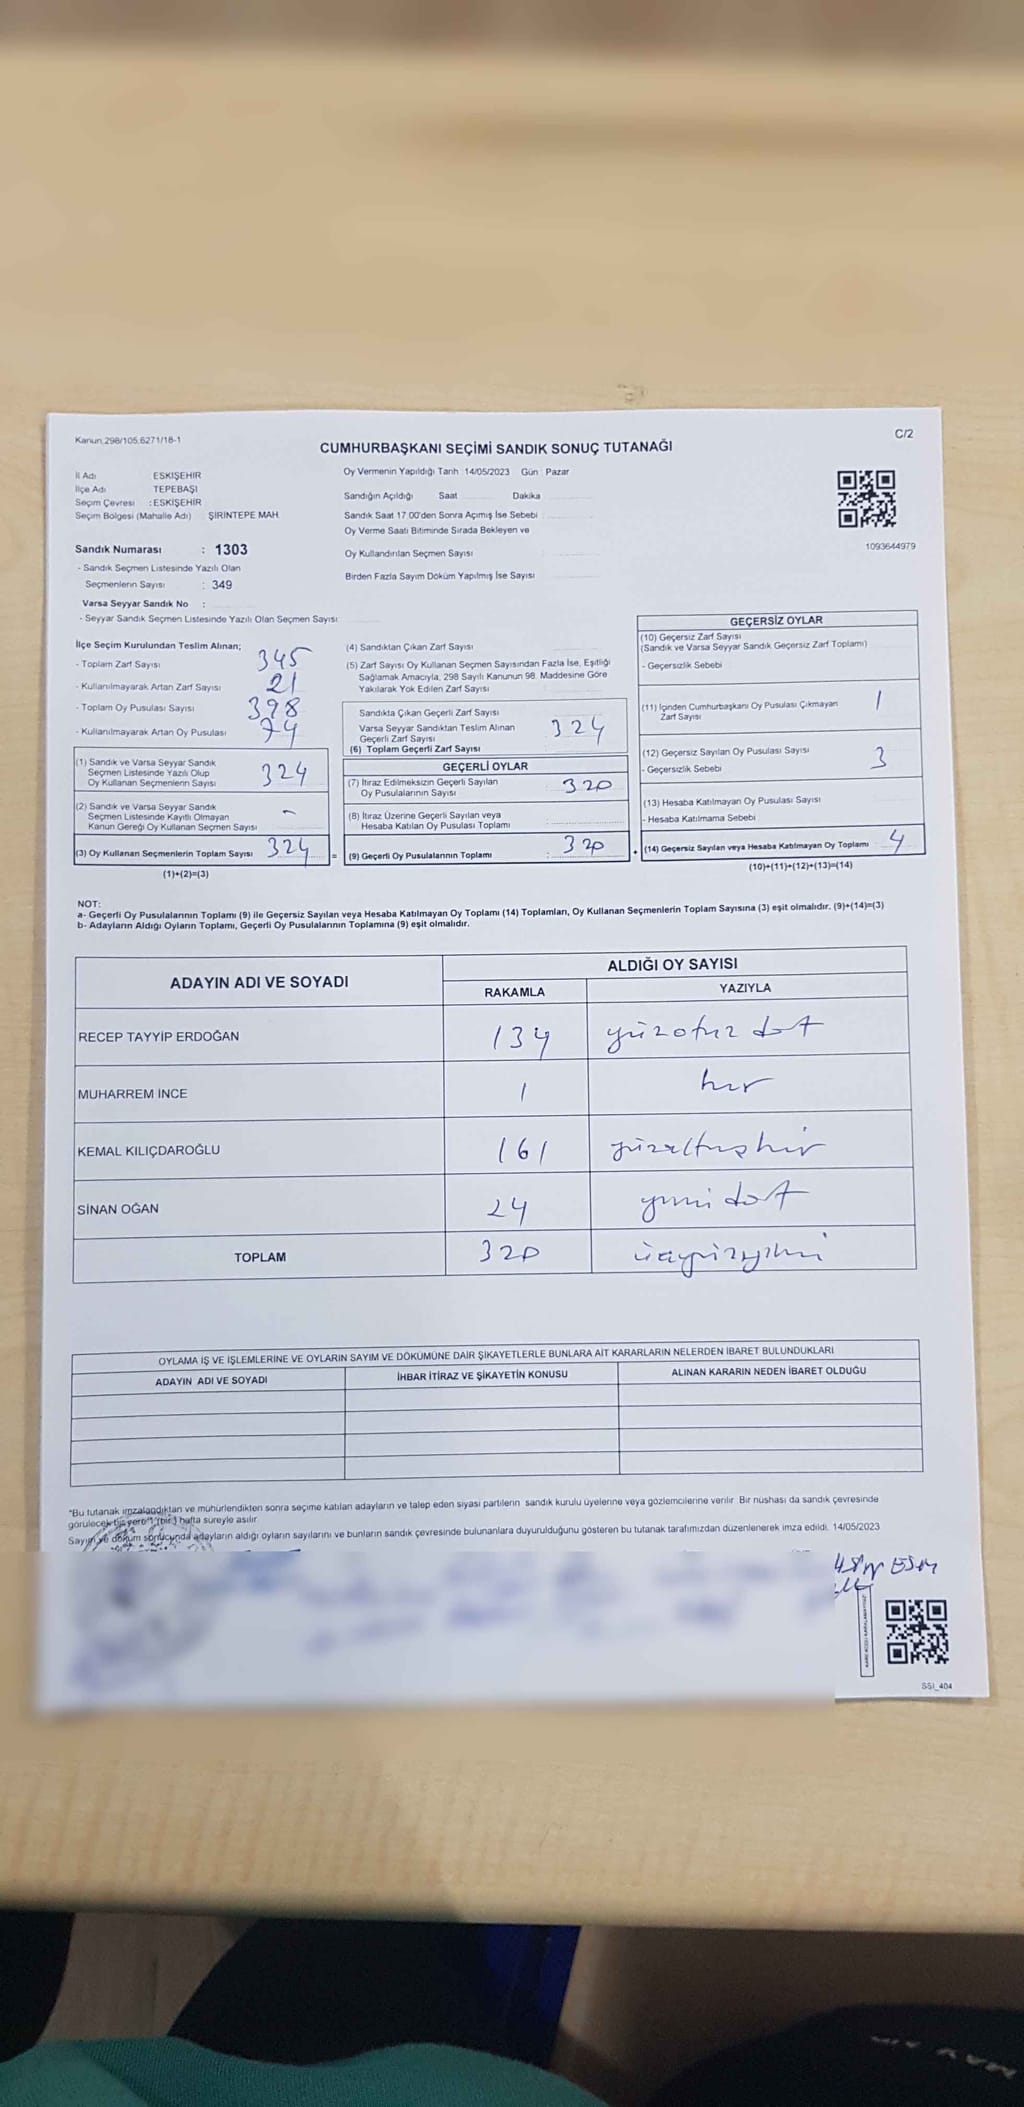 Kanun,298/105,6271/18-1
C/2
CUMHURBAŞKANI SEÇİMİ SANDIK SONUÇ TUTANAĞI
İl Adı ESKİŞEHİR
İlçe Adı TEPEBAŞI
Seçim Çevresi : ESKİŞEHİR
Seçim Bölgesi (Mahalle Adı) ŞİRİNTEPE MAH.
Oy Vermenin Yapıldığı Tarih 14/05/2023 Gün Pazar
Sandığın Açıldığı Saat Dakika
Sandık Saat 17.00'den Sonra Açımış İse Sebebi
Oy Verme Saati Bitiminde Sırada Bekleyen ve
Oy Kullandırılan Seçmen Sayısı
Birden Fazla Sayım Döküm Yapılmış İse Sayısı
1093644979
Sandık Numarası : 1303
- Sandık Seçmen Listesinde Yazılı Olan
Seçmenlerin Sayısı : 349
Varsa Seyyar Sandık No :
- Seyyar Sandık Seçmen Listesinde Yazılı Olan Seçmen Sayısı
İlçe Seçim Kurulundan Teslim Alınan;
- Toplam Zarf Sayısı 345
- Kullanılmayarak Artan Zarf Sayısı 21
- Toplam Oy Pusulası Sayısı 398
- Kullanılmayarak Artan Oy Pusulası 74
(1) Sandık ve Varsa Seyyar Sandık
Seçmen Listesinde Yazılı Olup
Oy Kullanan Seçmenlerin Sayısı 324
(2) Sandık ve Varsa Seyyar Sandık
Seçmen Listesinde Kayıtlı Olmayan
Kanun Gereği Oy Kullanan Seçmen Sayısı -
(3) Oy Kullanan Seçmenlerin Toplam Sayısı 324
(1)+(2)=(3)
(4) Sandıktan Çıkan Zarf Sayısı
(5) Zarf Sayısı Oy Kullanan Seçmen Sayısından Fazla İse, Eşitliği
Sağlamak Amacıyla, 298 Sayılı Kanunun 98. Maddesine Göre
Yakılarak Yok Edilen Zarf Sayısı
Sandıkta Çıkan Geçerli Zarf Sayısı
Varsa Seyyar Sandıktan Teslim Alınan
Geçerli Zarf Sayısı
(6) Toplam Geçerli Zarf Sayısı 324
GEÇERLİ OYLAR
(7) İtiraz Edilmeksizin Geçerli Sayılan
Oy Pusulalarının Sayısı 320
(8) İtiraz Üzerine Geçerli Sayılan veya
Hesaba Katılan Oy Pusulası Toplamı
= (9) Geçerli Oy Pusulalarının Toplamı : 320
GEÇERSİZ OYLAR
(10) Geçersiz Zarf Sayısı
(Sandık ve Varsa Seyyar Sandık Geçersiz Zarf Toplamı)
- Geçersizlik Sebebi
(11) İçinden Cumhurbaşkanı Oy Pusulası Çıkmayan
Zarf Sayısı 1
(12) Geçersiz Sayılan Oy Pusulası Sayısı 3
- Geçersizlik Sebebi
(13) Hesaba Katılmayan Oy Pusulası Sayısı
- Hesaba Katılmama Sebebi
+ (14) Geçersiz Sayılan veya Hesaba Katılmayan Oy Toplamı 4
(10)+(11)+(12)+(13)=(14)
NOT:
a- Geçerli Oy Pusulalarının Toplamı (9) ile Geçersiz Sayılan veya Hesaba Katılmayan Oy Toplamı (14) Toplamları, Oy Kullanan Seçmenlerin Toplam Sayısına (3) eşit olmalıdır. (9)+(14)=(3)
b- Adayların Aldığı Oyların Toplamı, Geçerli Oy Pusulalarının Toplamına (9) eşit olmalıdır.
ADAYIN ADI VE SOYADI
ALDIĞI OY SAYISI
RAKAMLA YAZIYLA
RECEP TAYYİP ERDOĞAN 134 yüzotuz dört
MUHARREM İNCE 1 bir
KEMAL KILIÇDAROĞLU 161 yüzaltmışbir
SİNAN OĞAN 24 yirmi dört
TOPLAM 320 üçyüzyirmi
OYLAMA İŞ VE İŞLEMLERİNE VE OYLARIN SAYIM VE DÖKÜMÜNE DAİR ŞİKAYETLERLE BUNLARA AİT KARARLARIN NELERDEN İBARET BULUNDUKLARI
ADAYIN ADI VE SOYADI İHBAR İTİRAZ VE ŞİKAYETİN KONUSU ALINAN KARARIN NEDEN İBARET OLDUĞU
*Bu tutanak imzalandıktan ve mühürlendikten sonra seçime katılan adayların ve talep eden siyasi partilerin sandık kurulu üyelerine veya gözlemcilerine verilir. Bir nüshası da sandık çevresinde
görülecek bir yere 1 (bir) hafta süreyle asılır.
Sayım ve döküm sonucunda adayların aldığı oyların sayılarını ve bunların sandık çevresinde bulunanlara duyurulduğunu gösteren bu tutanak tarafımızdan düzenlenerek imza edildi. 14/05/2023
SSI_404